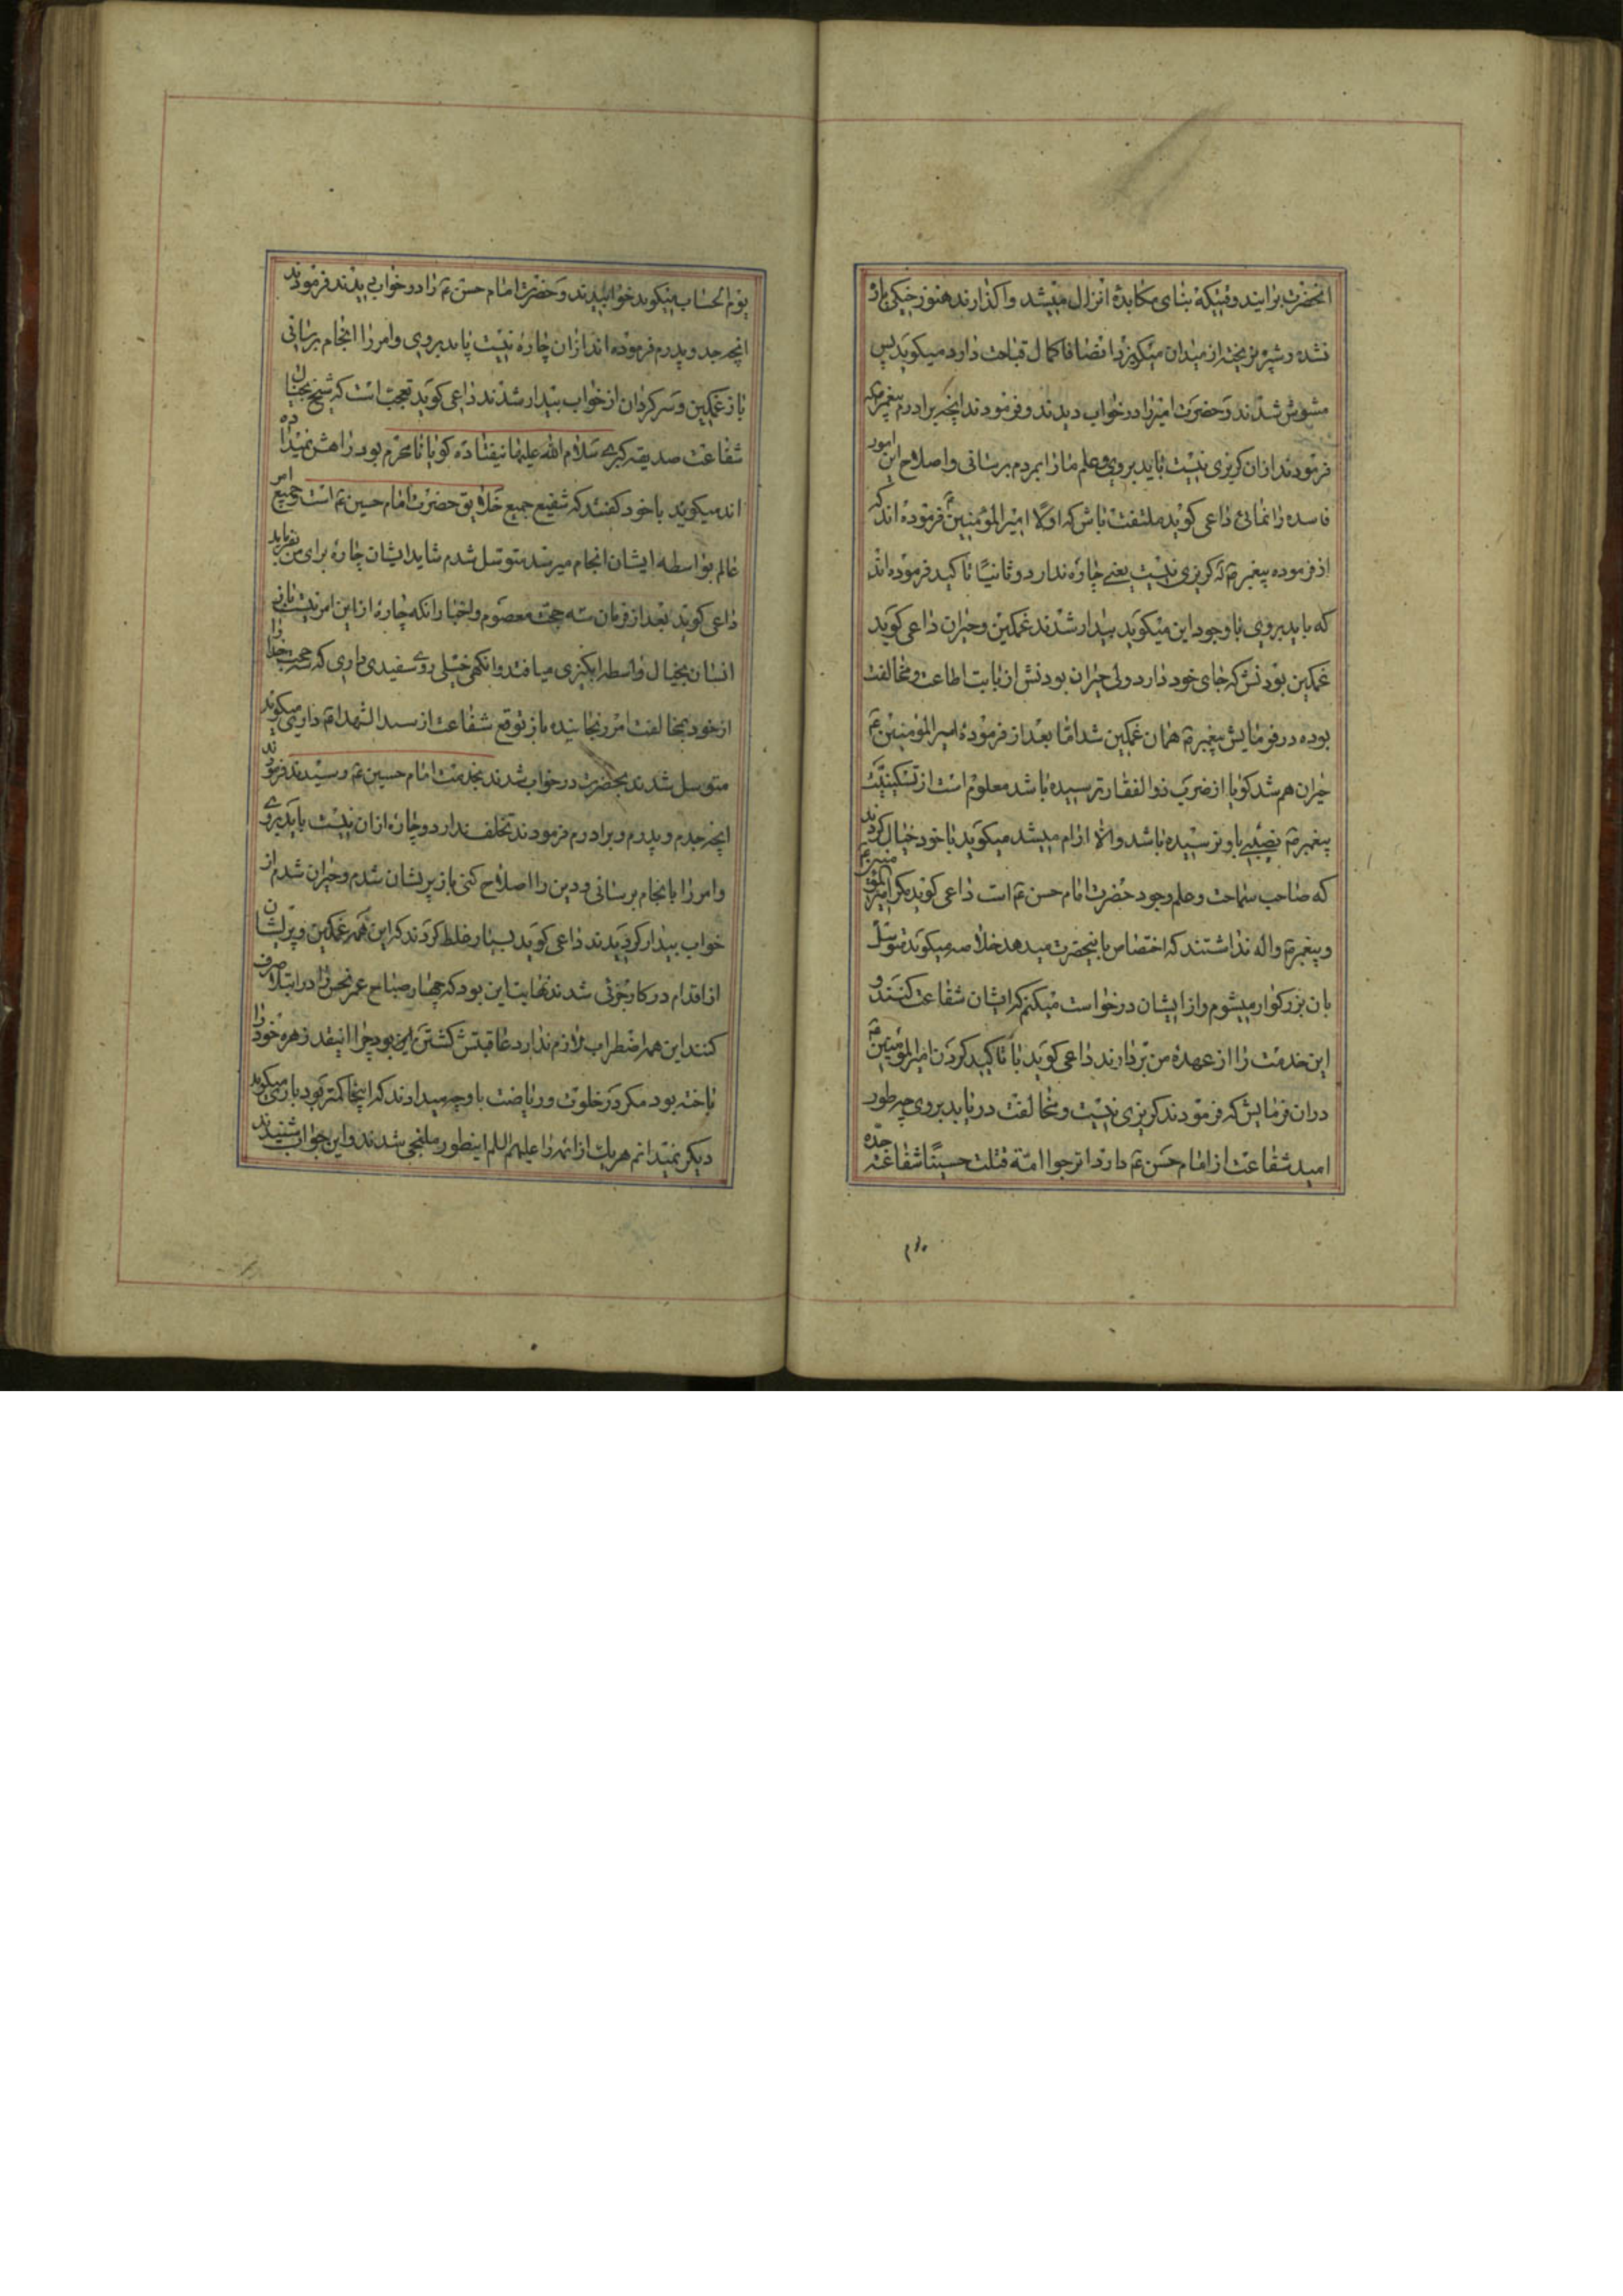 انحضرت برایند وقتیکه بنای مکابدهٔ انزال میشد واکذارند هنوز خیکی باز
نشده و شیر نریخته از میدان میکریزد انصافا کمال قباحت دارد میکوید پس
مشوش شدند و حضرت امیر را در خواب دیدند و فرمودند انچه برادرم پیغمبر ص که
فرمودند ازان کریزی نیست باید بروی و علم ما را بمردم برسانی و اصلاح این امور
فاسده را نمائی داعی کوید ملتفت باش که اولا امیر المؤمنین ع فرموده اند که
از فرموده پیغمبر ص که کریزی نیست یعنی چاره ندارد و ثانیًا تاکید فرموده اند
که باید بروی با وجود این میکوید بیدار شدند غمکین و حیران داعی کوید
غمکین بودنش که جای خود دارد ولی حیران بودنش از بابت اطاعت و مخالفت
بوده در فرمایش پیغمبر ص همان غمکین شد امّا بعد از فرمودهٔ امیر المؤمنین ع
حیران هم شد کویا از ضربت ذوالفقار ترسیده باشد معلوم است از تسکینیّت
پیغمبر ص نصیبی باو نرسیده باشد والا ارام میشد میکوید با خود خیال کردند
که صاحب سماحت و حلم وجود حضرت امام حسن ع است داعی کوید مکر امیر المؤمنین ع
و پیغمبر ص واله نداشتند که اختصاص بانحضرت میدهد خلاصه میکوید متوسّل
بان بزرکوار میشوم و از ایشان درخواست میکنم که ایشان شفاعت کنند و
این خدمت را از عهدهٔ من بردارند داعی کوید با تاکید کردن امیر المؤمنین ع
دران فرمایش که فرمودند کریزی نیست و مخالفت در باید بروی چه طور
امید شفاعت از امام حسن ع دارد اترجوا امّة قتلت حسینًا شفاعة جدّه
یوم الحساب میکوید خوابیدند و حضرت امام حسن ع را در خواب دیدند فرمودند
انچه جد و پدرم فرموده اند ازان چارهٔ نیست باید بروی و امر را انجام برسانی
باز غمکین و سرکردان از خواب بیدار شدند داعی کوید تعجب است که شیخ بخیال
شفاعت صدیقه کبری سلام الله علیها نیفتاده کویا نامحرم بود راهش نمیداده
اند میکوید با خود کفتند که شفیع جمیع خلایق حضرت امام حسین ع است و جمیع امر
عالم بواسطه ایشان انجام میرسد متوسّل شدم شاید ایشان چارهٔ برای من بفرماید
داعی کوید بعد از فرمان سه حجت معصوم و اخبار انکه چارهٔ از این امر نیست باز
انسان بخیال واسطه انکیزی میافتد وانکهی خیلی روی سفیدی داری که حجت خدا را
از خود بمخالفت امر رنجانیده باز توقع شفاعت از سید الشهداء ع داری میکوید
متوسل شدند بحضرت در خواب شدند بخدمت امام حسین ع رسیدند فرمودند
انچه جدم و پدرم و برادرم فرمودند تخلف ندارد و چارهٔ ازان نیست باید بروی
و امر را بانجام برسانی و دین را اصلاح کنی باز پریشان شدم و حیران شدم از
خواب بیدار کردیدند داعی کوید بسیار غلط کردند که این همه غمکین و پریشان
از اقدام در کار جزئی شدند نهایت این بود که چهار صباح عمر نحس را در ابتلا صرف
کنند این همه اضطراب لازم ندارد عاقبتش کشتن این بود چرا اینقدر زهره خود را
باخته بود مکر در خلوت و ریاضت باو چه میدادند که اینجا کمتر بود باری میکوید
دیکر نمیدانم هریك از ائمه را علیهم السلم اینطور ملتجی شدند و این جواب شنیدند